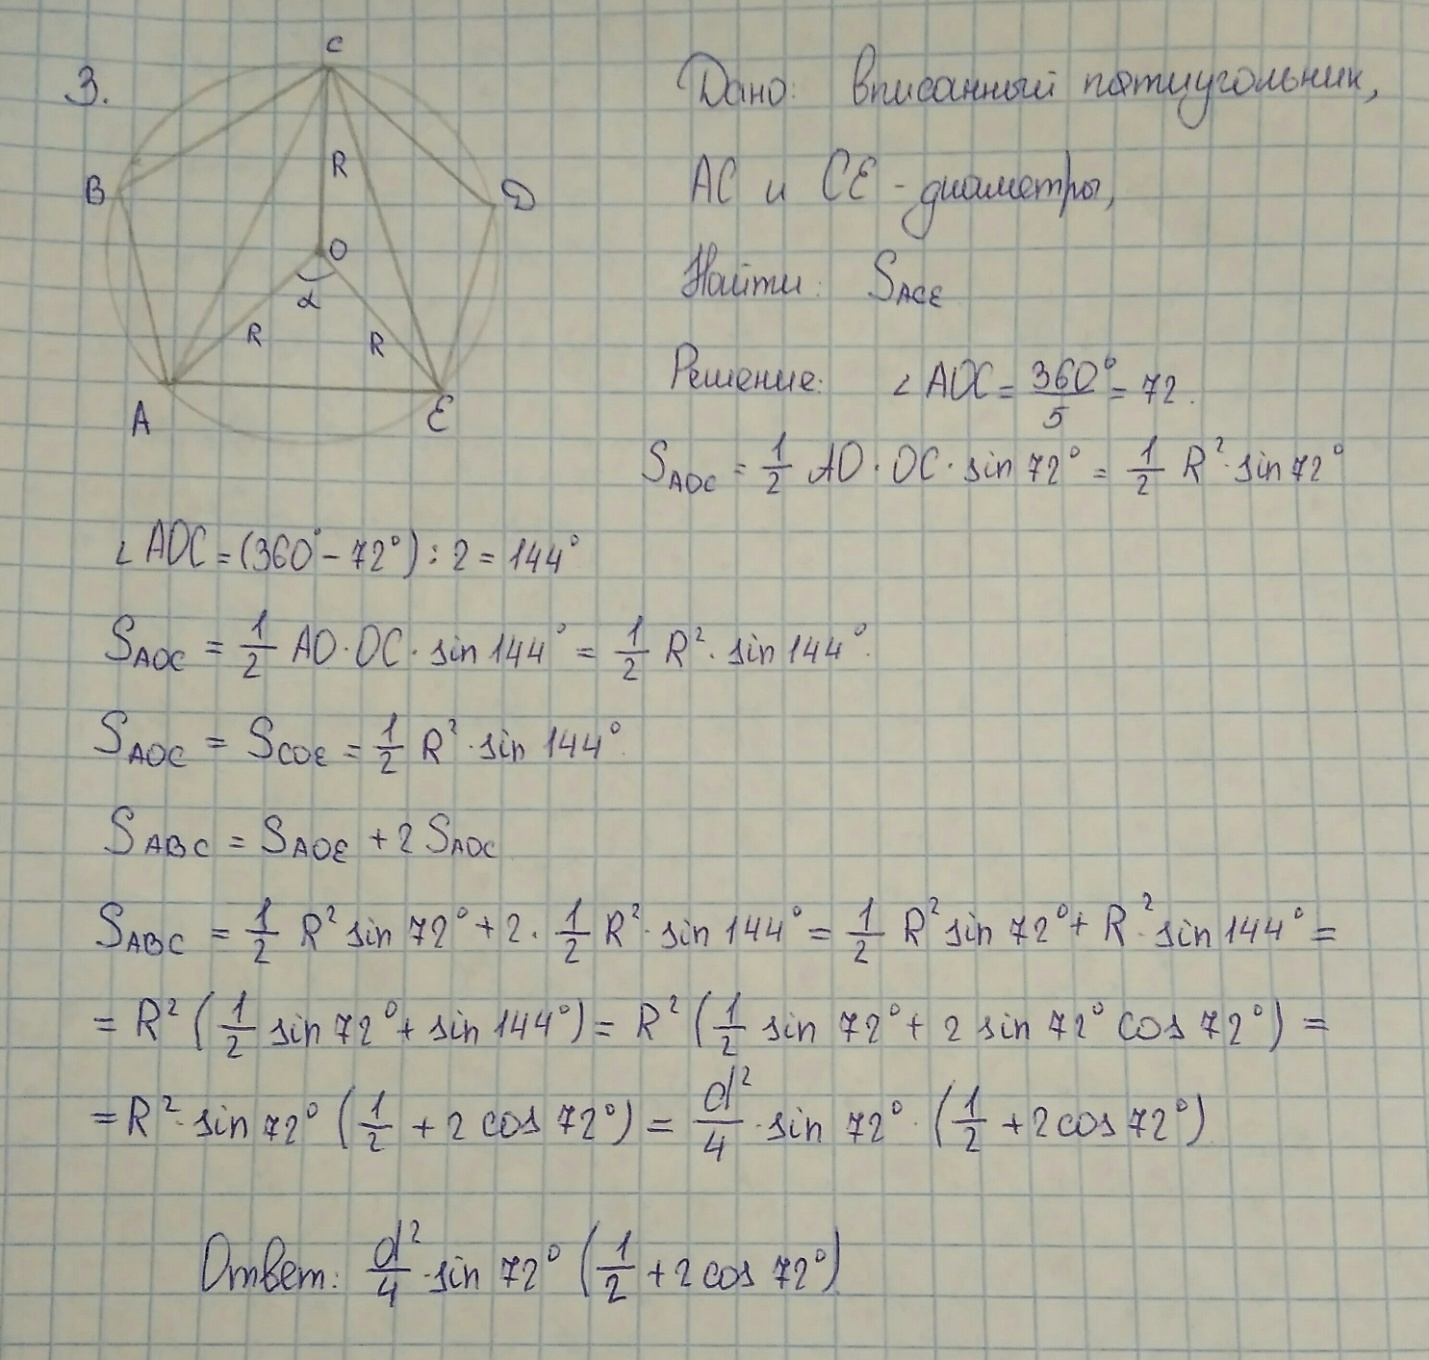 3.
C
B
D
R
O
α
R
R
A
E
Дано: вписанный пятиугольник,
AC и CE - диаметры,
Найти: S_ACE
Решение: ∠AOC = 360°/5 = 72.
S_AOC = 1/2 AO · OC · sin 72° = 1/2 R² · sin 72°
∠AOC = (360° - 72°) : 2 = 144°
S_AOC = 1/2 AO · OC · sin 144° = 1/2 R² · sin 144°.
S_AOC = S_COE = 1/2 R² · sin 144°.
S_ABC = S_AOE + 2 S_AOC
S_ABC = 1/2 R² sin 72° + 2 · 1/2 R² · sin 144° = 1/2 R² sin 72° + R² · sin 144° =
= R² (1/2 sin 72° + sin 144°) = R² (1/2 sin 72° + 2 sin 72° cos 72°) =
= R² · sin 72° (1/2 + 2 cos 72°) = d²/4 · sin 72° · (1/2 + 2 cos 72°)
Ответ: d²/4 · sin 72° (1/2 + 2 cos 72°)